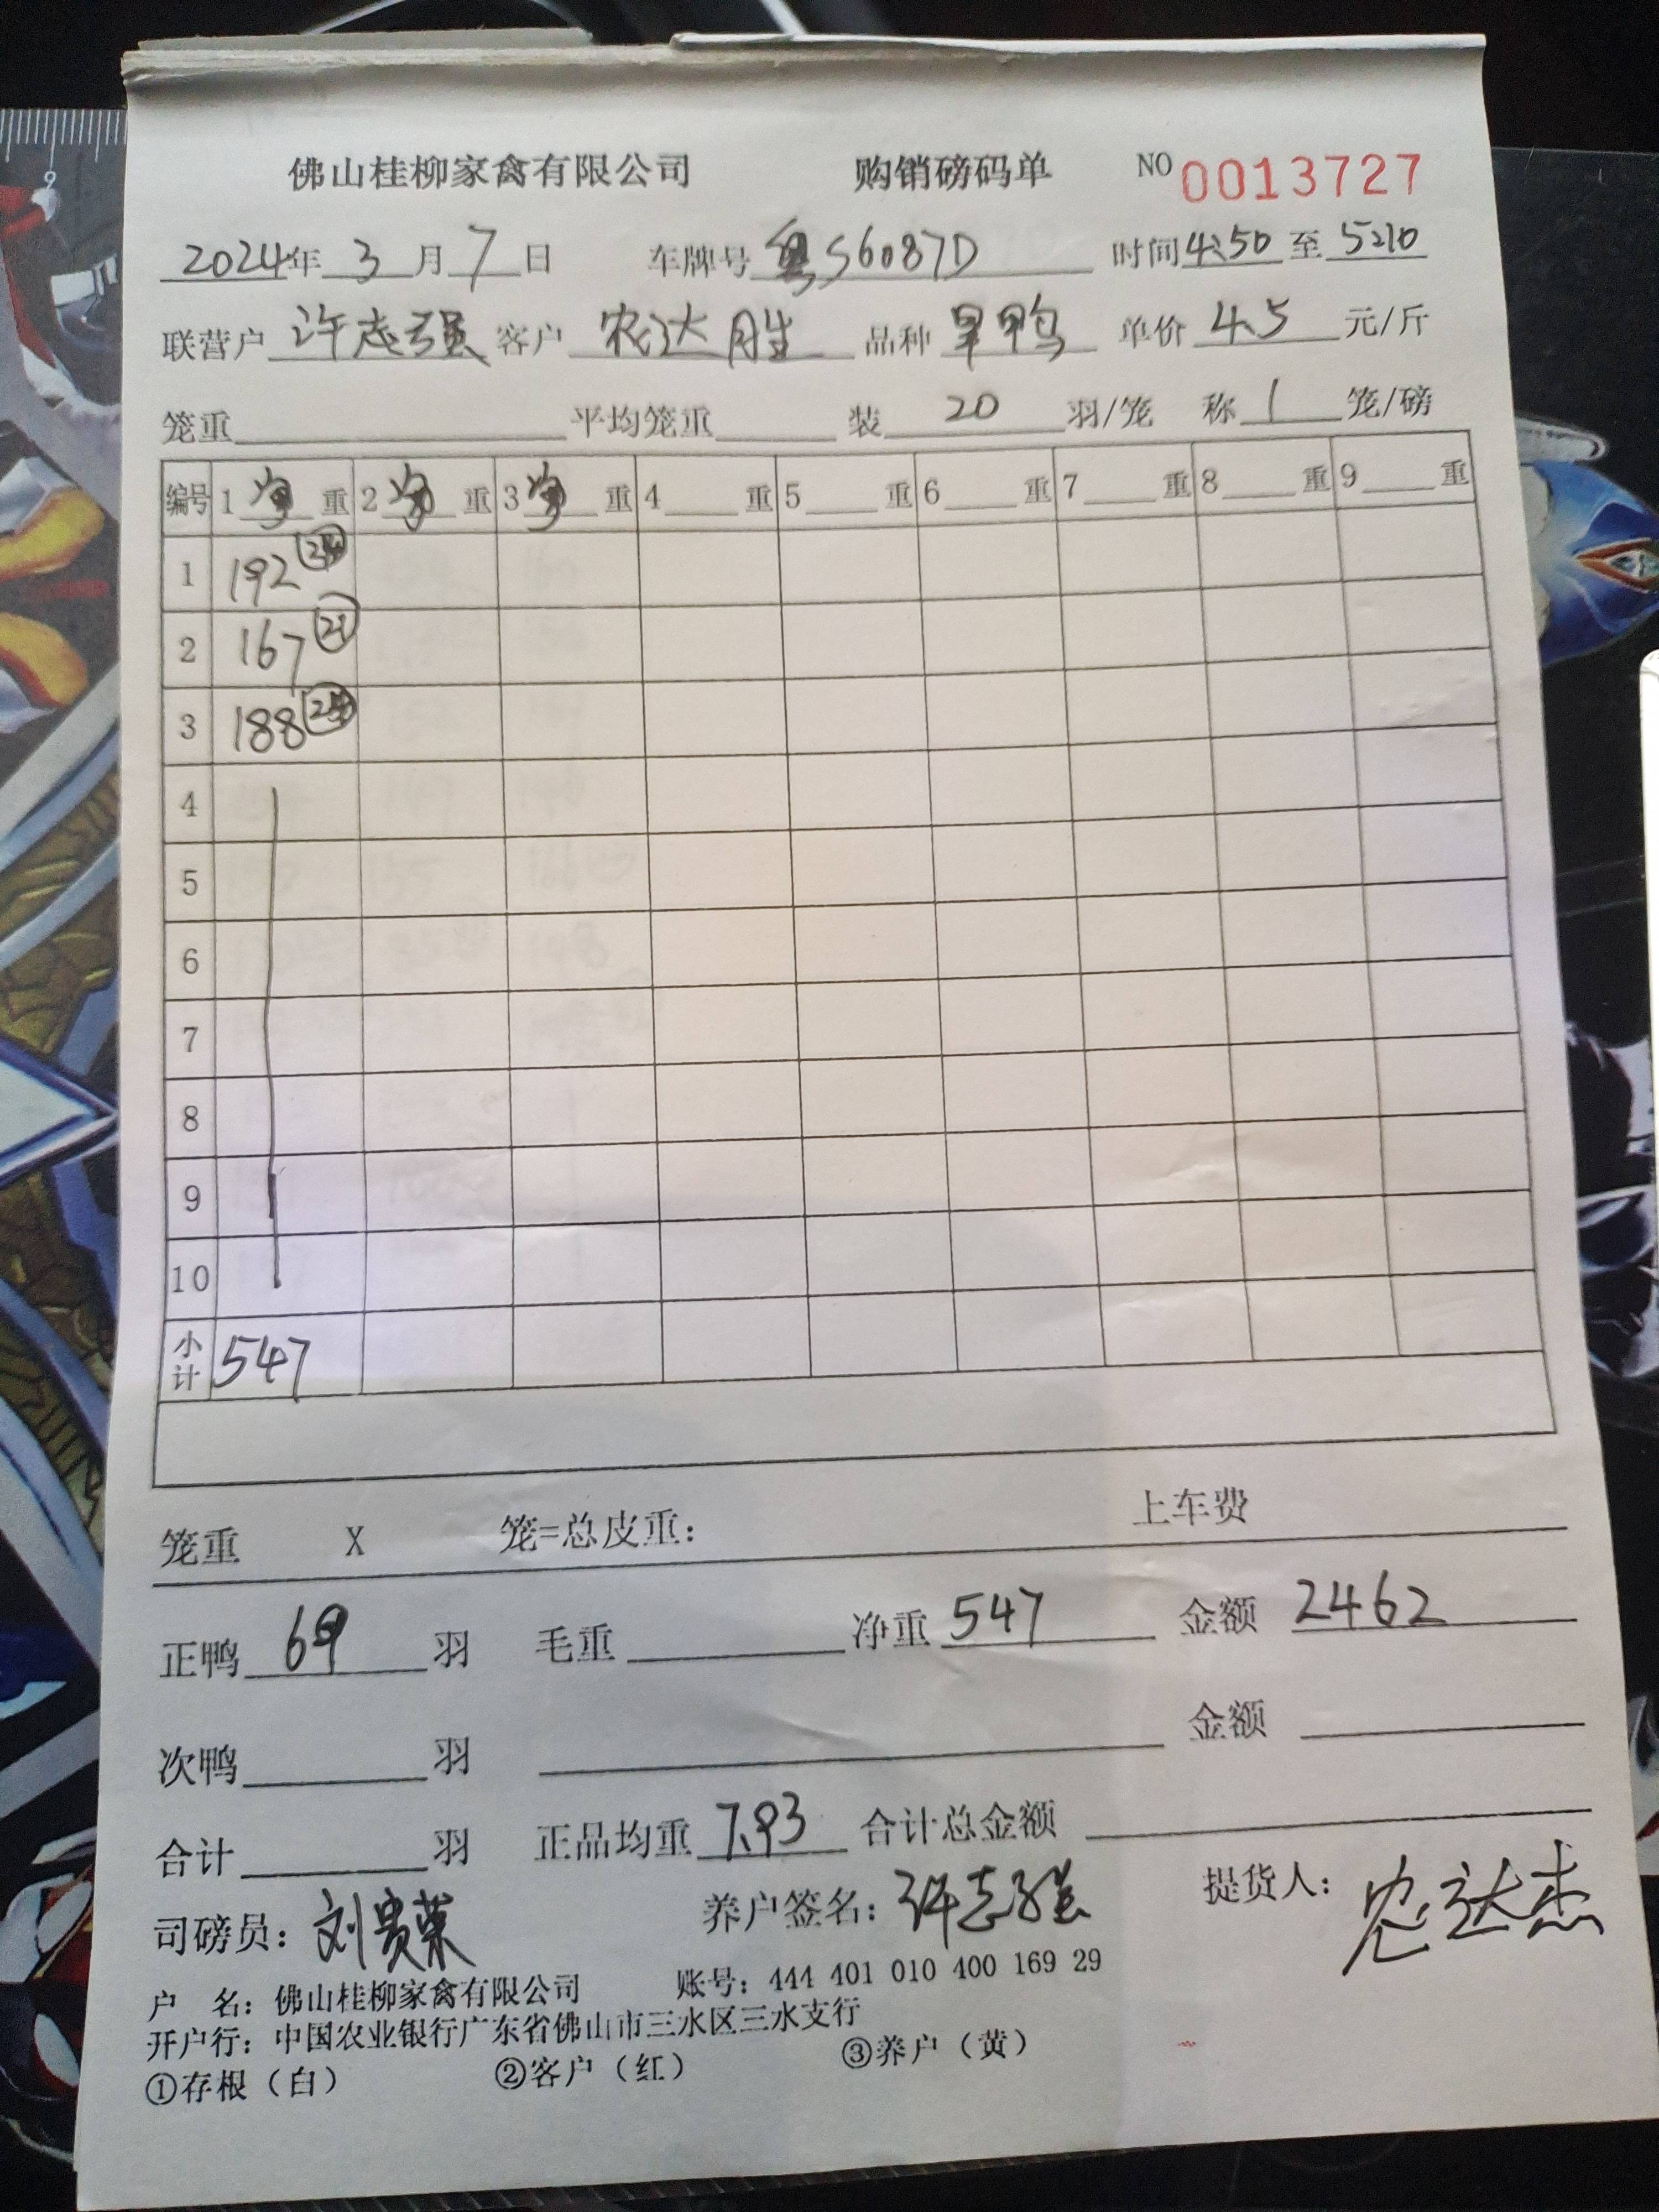 佛山桂柳家禽有限公司 购销磅码单 NO 0013727
2024年 3 月 7 日 车牌号 粤S6087D 时间 4:50 至 5:10
联营户 许志强 客户 农达胜 品种 旱鸭 单价 4.5 元/斤
笼重 平均笼重 装 20 羽/笼 称 1 笼/磅
编号 1 净 重 2 净 重 3 净 重 4 重 5 重 6 重 7 重 8 重 9 重
1 192
2 167 21
3 188
4
5
6
7
8
9
10
小计 547
笼重 X 笼=总皮重: 上车费
正鸭 69 羽 毛重 净重 547 金额 2462
次鸭 羽 金额
合计 羽 正品均重 7.93 合计总金额
司磅员: 刘贵荣 养户签名: 许志强 提货人: 农达杰
户 名: 佛山桂柳家禽有限公司 账号: 444 401 010 400 169 29
开户行: 中国农业银行广东省佛山市三水区三水支行
①存根（白） ②客户（红） ③养户（黄）